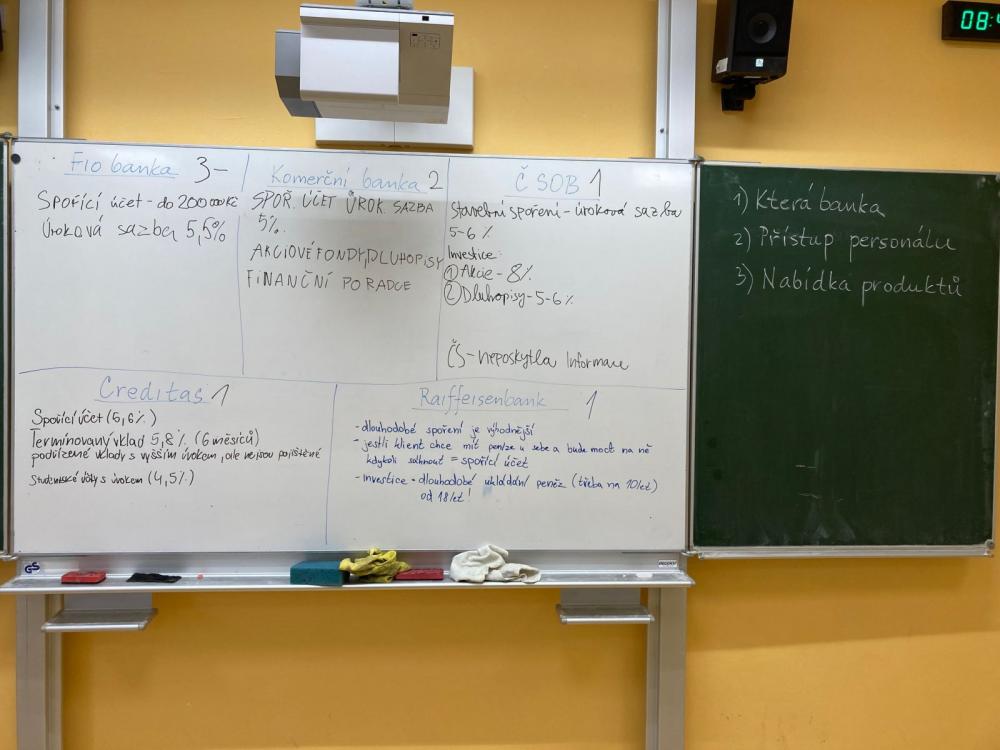 Fio banka 3-
Spořící účet - do 200 000 Kč
Úroková sazba 5,5%
Komerční banka 2
SPOŘ. ÚČET ÚROK. SAZBA
5%.
AKCIOVÉ FONDY, DLUHOPISY
FINANČNÍ PORADCE
ČSOB 1
Stavební spoření - úroková sazba
5-6 %
Investice:
① Akcie - 8%
② Dluhopisy - 5-6 %
ČS - neposkytla informace
Creditas 1
Spořící účet (5,6%)
Termínovaný vklad 5,8% (6 měsíců)
podřízené vklady s vyšším úrokem, ale nejsou pojištěné
Studentské účty s úrokem (4,5%)
Raiffeisenbank 1
- dlouhodobé spoření je výhodnější
- jestli klient chce mít peníze u sebe a bude moct na ně
kdykoli sáhnout = spořící účet
- Investice = dlouhodobé ukládání peněz (třeba na 10 let)
od 18 let!
1) Která banka
2) Přístup personálu
3) Nabídka produktů
GS